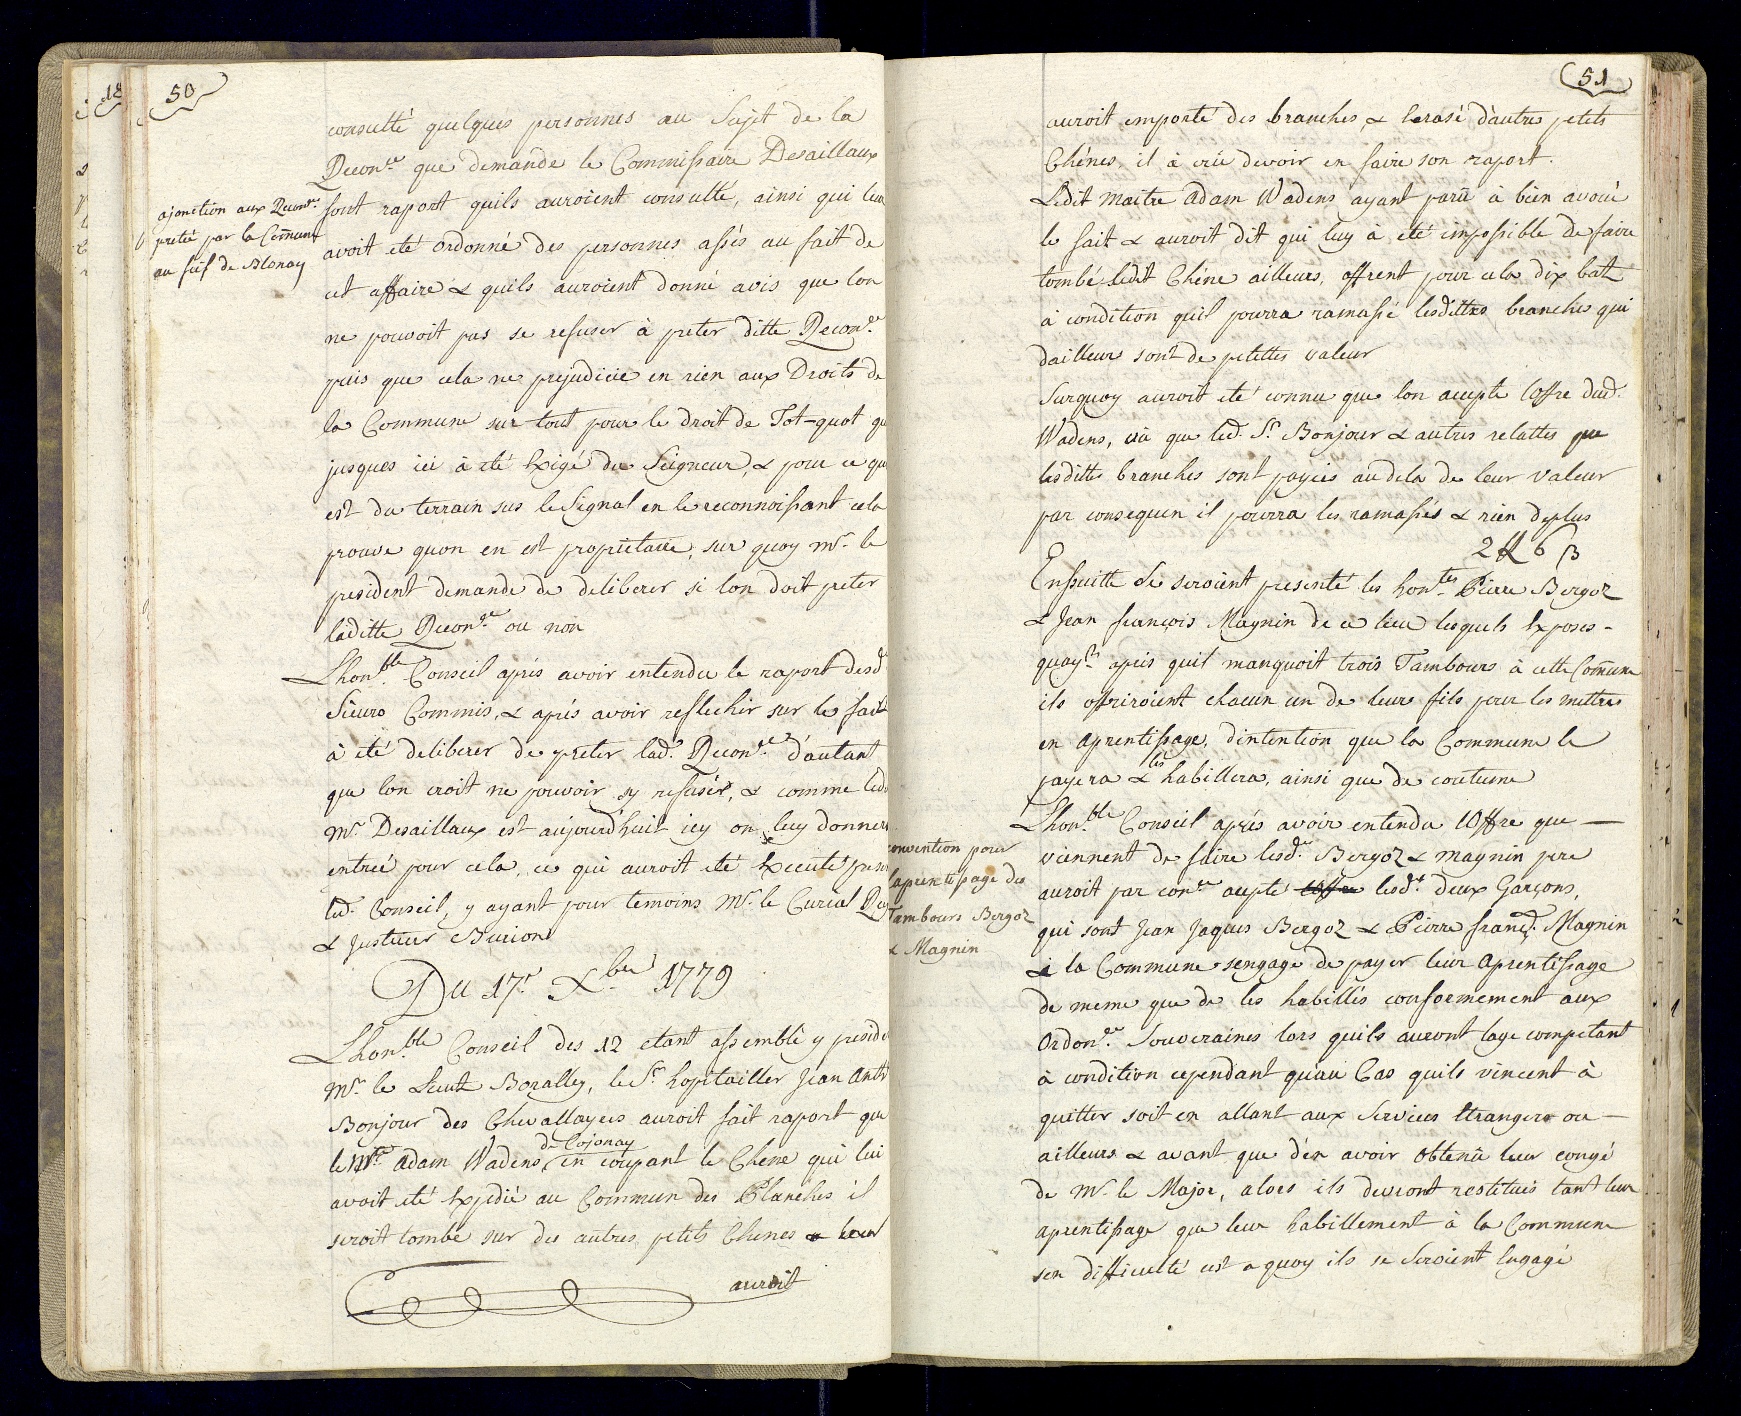 50
ajonction aux Reconce
preté par la Comune
au fief de Blonay
consulté quelques personnes au Sujet de la
Reconce que demande le Commissaire Desaillaux
font raport quils auroient consulté, ainsi qui leur
avoit eté ordonné des personnes assés au fait de
cet affaire & quils auroient donné avis que lon
ne pouvoit pas se refuser à preter ditte Reconce
puis que cela ne prejudicie en rien aux Droits de
la Commune sur tout pour le droit de Tot-quot qu
jusques ici à eté Exigé du Seigneur, & pour ce qu
est du terrain sus le Signal en le reconnoissant cela
prouve quon en est propriétaire, sur quoy Mr. le
president demande de deliberer si lon doit preter
laditte Reconce ou non
Lhonble Conseil aprés avoir entendu le raport desd
Sieurs Commis, & aprés avoir reflechir sur le fait
à eté deliberer de preter lad. Reconce d'autant
que lon croit ne pouvoir sy refuser, & comme led
Mr Desaillaux est aujourd'huit icy on luy donner
entreé pour cela, ce qui auroit eté Executé
led. Conseil, y ayant pour temoins Mr. le Curial
& Justicier Burion
Du 17e Xbre 1779
Lhonble Conseil des 12 etant assemblé y preside
Mr le Lieut Boralley, le Sr. hopitailler Jean Anth
Bonjour des Chevallayres auroit fait raport que
le Mre Adam Wadens de Cojonay en coupant le Chene qui lui
avoit eté Expedié au Commun des Planches il
seroit tombé sur des autres petits Chenes &
auroit
51
auroit emporté des branches, & Ecrasé d'autres petits
Chénes, il à crû devoir en faire son raport.
Ledit Maitre Adam Wadens ayant parû à bien avoué
le fait & auroit dit qui luy à eté impossible de faire
tombé ledit Chéne ailleurs, offrent pour cela dix batz
à condition quil pourra ramassé lesdittes branches qui
dailleurs sont de petittes valeur
Surquoy auroit eté connu que lon accepte loffre dud.
Wadens, vû que led. Sr. Bonjour & autres relattes que
lesdittes branches sont payées au dela de leur valeur
par consequen il pourra les ramassés & rien deplus
2 ff 6 β
Ensuitte se seroient presenté les honetes Pierre Bergoz
& Jean françois Magnin de ce lieu lesquels Exposes-
quayt apris quil manquoit trois Tambours à cette Comune
ils offriroient chacun un de leurs fils pour les mettres
en aprentissage, d'intention que la Commune le
payera & les habillera, ainsi que de coutume
Lhonble Conseil aprés avoir entendu lOffre que
convention pour
laprentissage des
Tambours Bergoz
& Magnin
viennent de faire lesd. Bergoz & Magnin pere
auroit par conce accepté loffre lesdt. deux Garçons,
qui sont Jean Jaques Bergoz & Pierre franç. Magnin
& la Commune sengage de payer leur aprentissage
de meme que de les habillés conformement aux
Ordonce Souveraines lors quils auront lage competant
à condition cependant quau Cas quils vincent à
quitter soit en allant aux Services Etrangers ou
ailleurs & avant que d'en avoir obtenû leur congé
de Mr. le Major, alors ils devront restitués tant leur
aprentissage que leur habillement à la Commune
sen difficulté cest a quoy ils se seroient Engagé